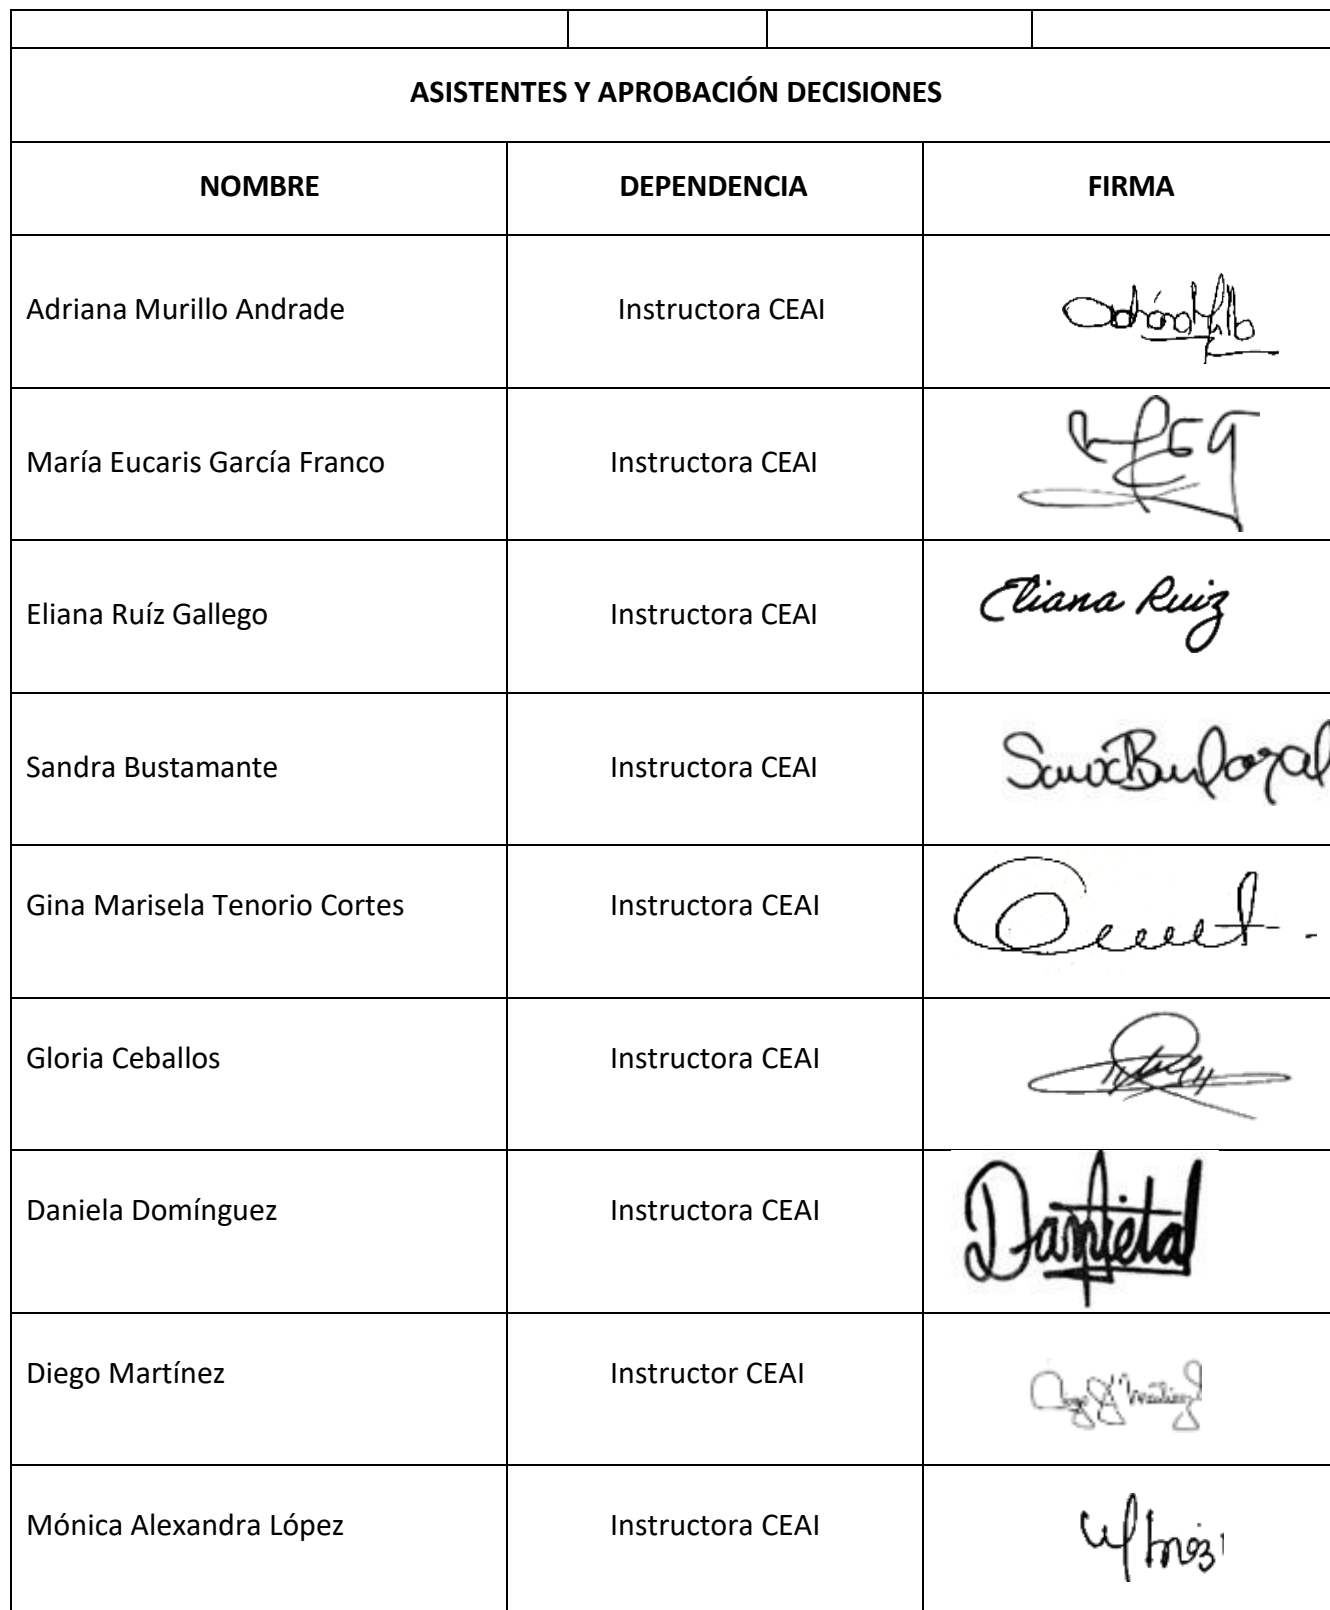 ASISTENTES Y APROBACIÓN DECISIONES
NOMBRE DEPENDENCIA FIRMA
Adriana Murillo Andrade Instructora CEAI
María Eucaris García Franco Instructora CEAI
Eliana Ruíz Gallego Instructora CEAI Eliana Ruiz
Sandra Bustamante Instructora CEAI
Gina Marisela Tenorio Cortes Instructora CEAI
Gloria Ceballos Instructora CEAI
Daniela Domínguez Instructora CEAI
Diego Martínez Instructor CEAI
Mónica Alexandra López Instructora CEAI